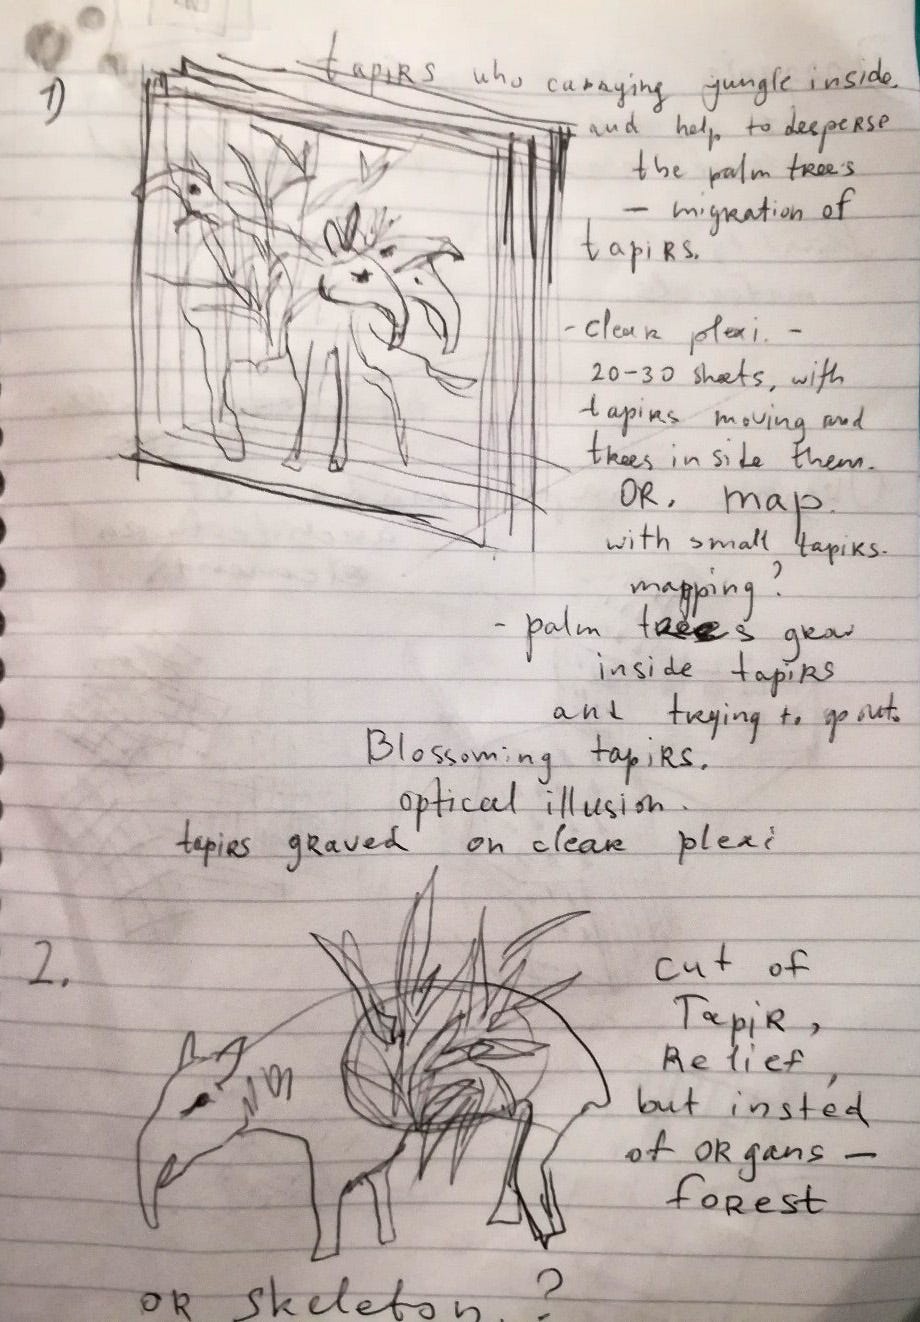 1)
tapirs who carrying jungle inside.
and help to deeperse
the palm trees
- migration of
tapirs.
- clear plexi. -
20-30 sheets, with
tapirs moving and
trees inside them.
OR. map.
with small tapirs.
mapping?
- palm trees grow
inside tapirs
and trying to go out.
Blossoming tapirs.
optical illusion.
tapirs graved on clear plexi
2.
cut of
Tapir,
Relief,
but insted
of organs -
forest
OR skeleton.?